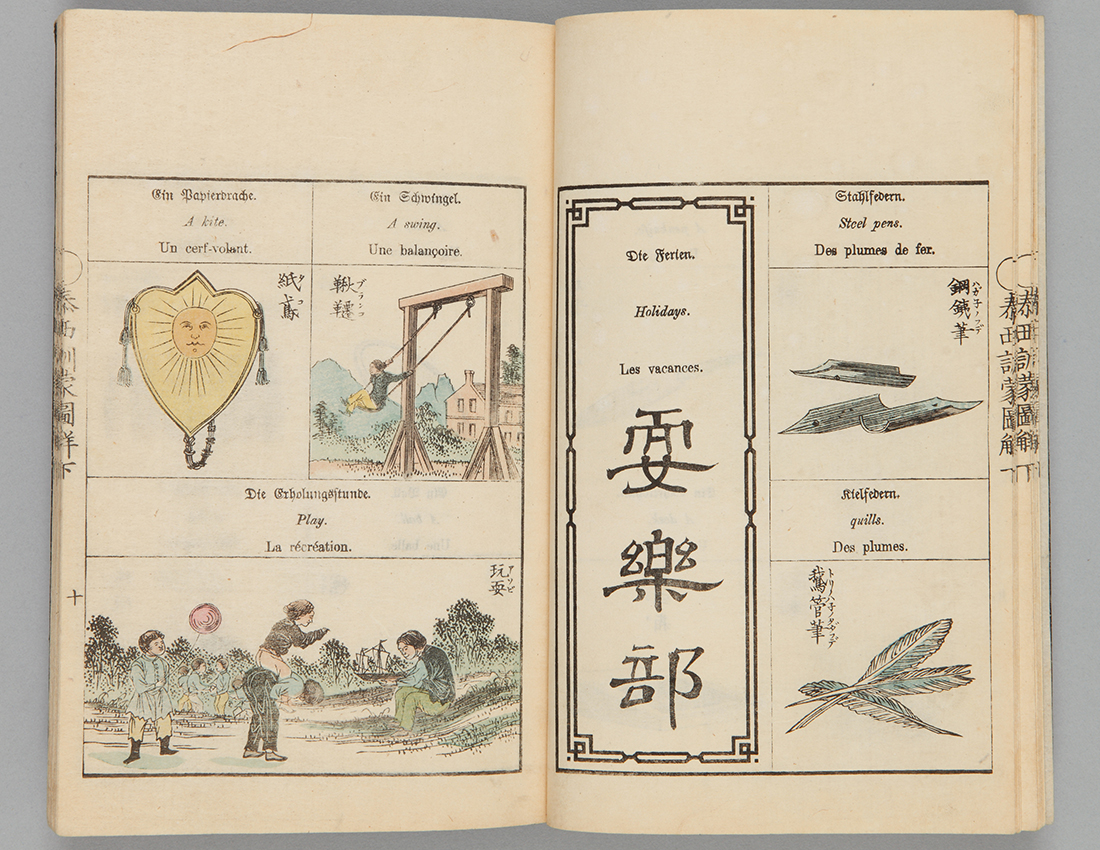 Stahlfedern.
Steel pens.
Des plumes de fer.
鋼鐵筆
ハガ子ノフデ
Kielfedern.
quills.
Des plumes.
鵞管筆
Die Ferien.
Holidays.
Les vacances.
耍樂部
Ein Schwingel.
A swing.
Une balançoire.
鞦韆
ブランコ
Ein Papierdrache.
A kite.
Un cerf-volant.
紙鳶
タコ
Die Erholungsstunde.
Play.
La récréation.
玩耍
アソビ
泰西訓蒙圖解下
十